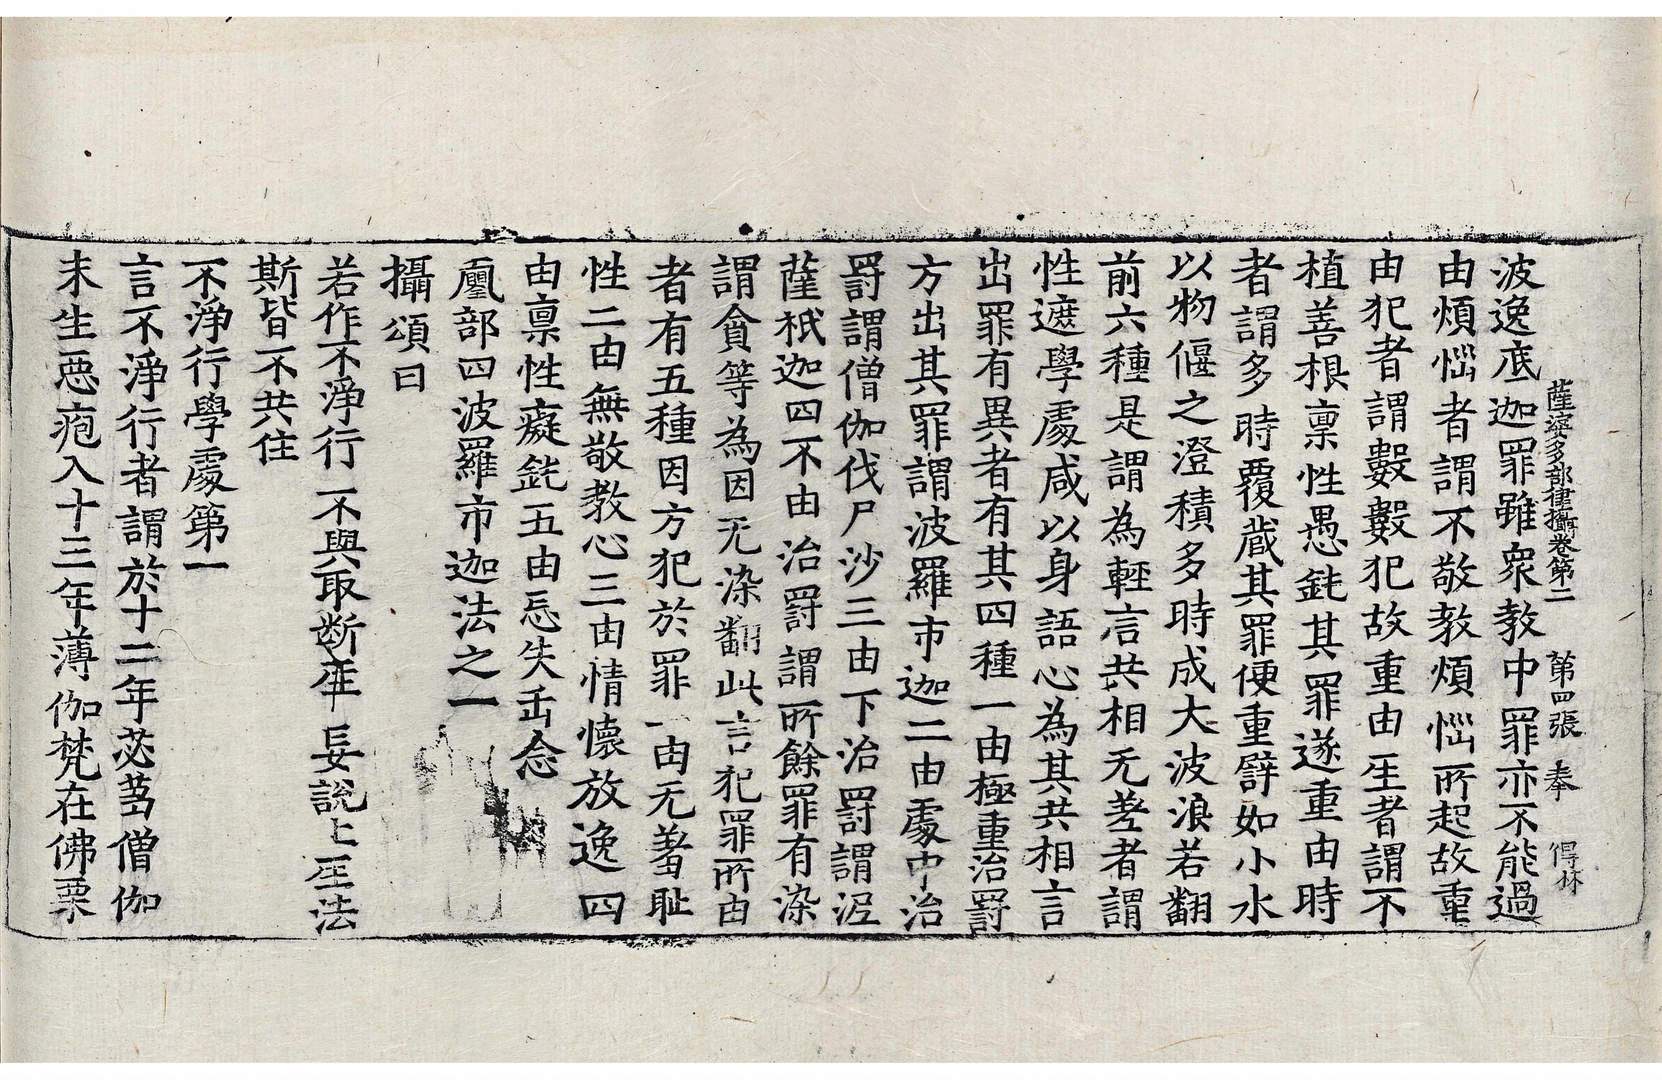 薩婆多部律攝卷第二 第四張 奉 得林
波逸底迦罪雖衆教中罪亦不能過
由煩惱者謂不敬教煩惱所起故重
由犯者謂數數犯故重由坐者謂不
植善根禀性愚鈍其罪遂重由時
者謂多時覆蔵其罪便重譬如小水
以物偃之澄積多時成大波浪若翻
前六種是謂為輕言共相无差者謂
性遮學處咸以身語心為其共相言
出罪有異者有其四種一由極重治罸
方出其罪謂波羅市迦二由處中治
罸謂僧伽伐尸沙三由下治罸謂波
薩祇迦四不由治罸謂所餘罪有染
謂貪等為因无染翻此言犯罪所由
者有五種因方犯於罪一由无羞耻
性二由無敬教心三由情懷放逸四
由禀性癡鈍五由忘失正念
初部四波羅市迦法之一
攝頌曰
若作不淨行 不與取斷人 妄說上人法
斯皆不共住
不淨行學處第一
言不淨行者謂於十二年苾蒭僧伽
未生惡疱入十三年薄伽梵在佛栗